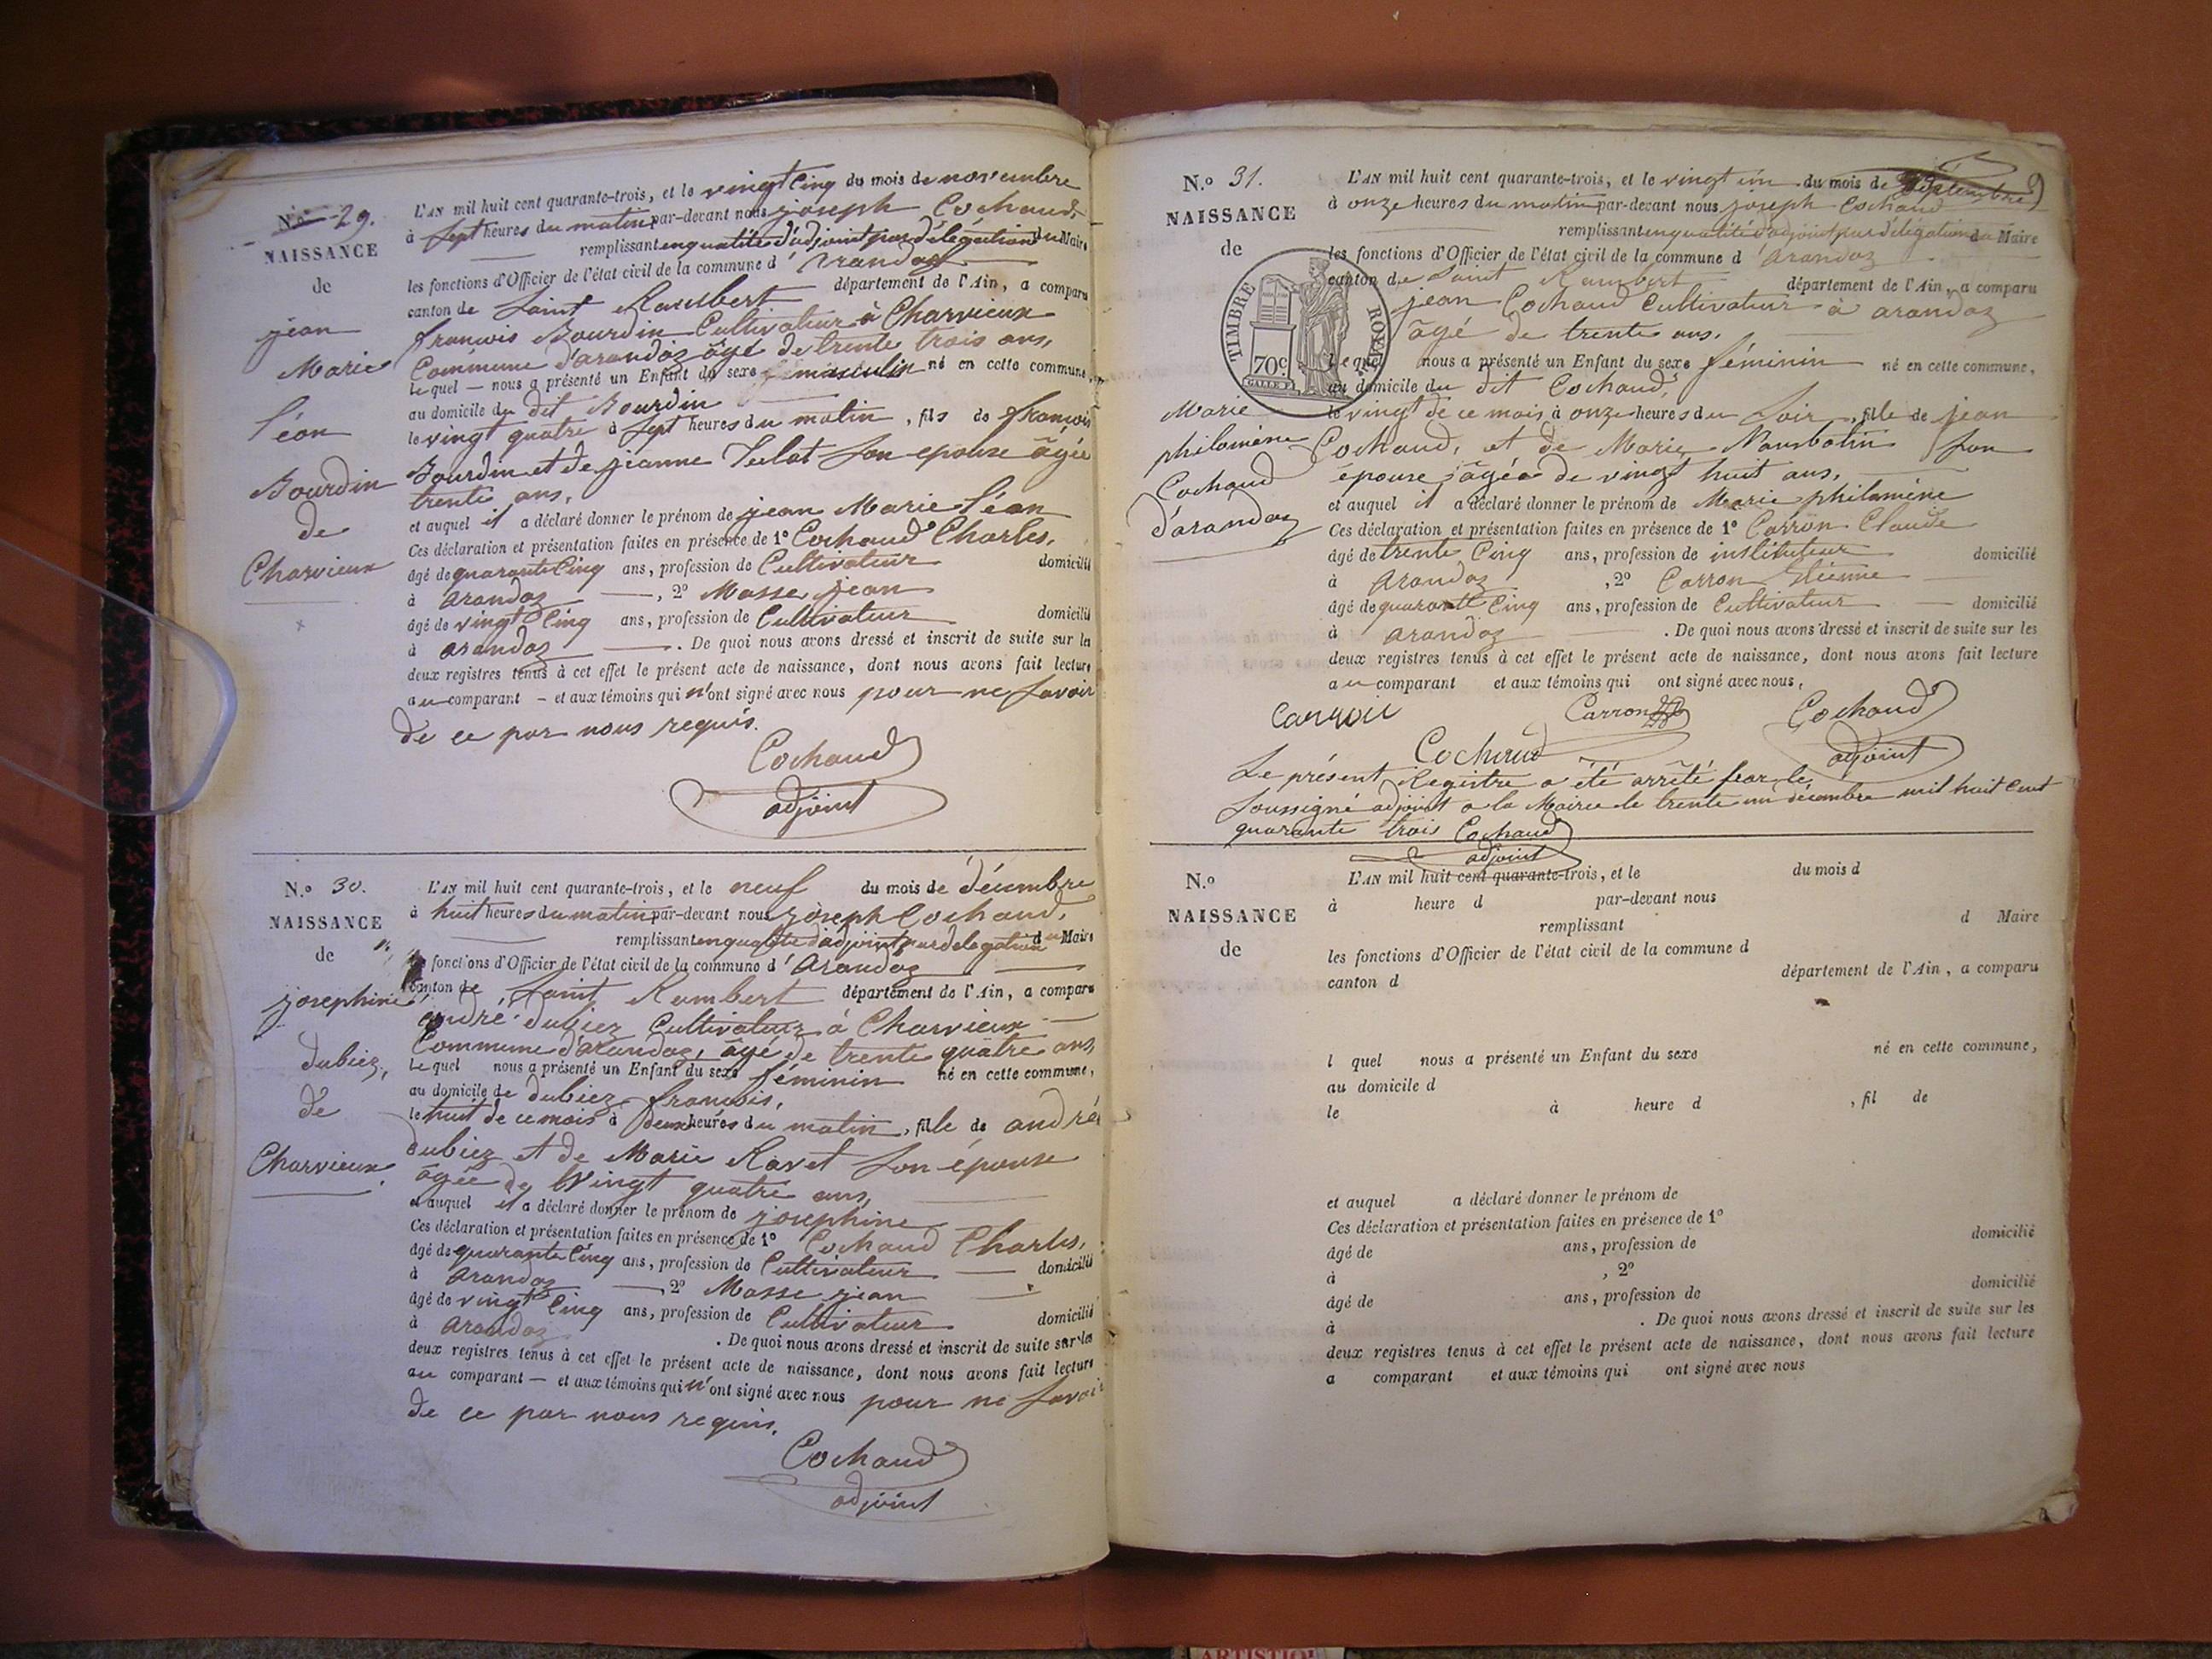 N.º 29.
NAISSANCE
de
jean
Marie
Léon
Bourdin
de
Charvieux
L'AN mil huit cent quarante-trois, et le vingt cinq du mois de novembre
à sept heures du matin par-devant nous joseph Cochaud,
remplissant en qualité d'adjoint par délégation du Maire
les fonctions d'Officier de l'état civil de la commune d'arandaz
canton de Saint Rambert département de l'Ain, a comparu
francois Bourdin Cultivateur à Charvieux
Commune d'arandaz âgé de trente trois ans,
Lequel — nous a présenté un Enfant du sexe masculin né en cette commune,
au domicile du dit Bourdin
le vingt quatre à sept heures du matin, fils de francois
Bourdin et de jeanne Tulat son epouse âgée
trente ans,
et auquel il a déclaré donner le prénom de jean Marie Léon
Ces déclaration et présentation faites en présence de 1º Cochaud Charles,
âgé de quarante Cinq ans, profession de Cultivateur domicilié
à arandaz —, 2º Masse jean
âgé de vingt Cinq ans, profession de Cultivateur domicilié
à arandaz —. De quoi nous avons dressé et inscrit de suite sur les
deux registres tenus à cet effet le présent acte de naissance, dont nous avons fait lecture
au comparant — et aux témoins qui n'ont signé avec nous pour ne savoir
de ce par nous requis.
Cochaud
adjoint
N.º 30.
NAISSANCE
de
josephine
dubiez,
de
Charvieux,
L'AN mil huit cent quarante-trois, et le neuf du mois de décembre
à huit heures du matin par-devant nous joseph Cochaud,
remplissant en qualité d'adjoint par delegation du Maire
les fonctions d'Officier de l'état civil de la commune d'arandaz
canton de Saint Rambert département de l'Ain, a comparu
andré dubiez Cultivateur à Charvieux
Commune d'arandaz, âgé de trente quatre ans,
Lequel nous a présenté un Enfant du sexe féminin né en cette commune,
au domicile de dubiez francois,
le huit de ce mois à deux heures du matin, fille de andré
dubiez et de Marie Ravet son épouse
âgée de Vingt quatre ans,
et auquel il a déclaré donner le prénom de josephine
Ces déclaration et présentation faites en présence de 1º Cochaud Charles,
âgé de quarante Cinq ans, profession de Cultivateur — domicilié
à arandaz —, 2º Masse jean
âgé de vingt Cinq ans, profession de Cultivateur domicilié
à arandaz. De quoi nous avons dressé et inscrit de suite sur les
deux registres tenus à cet effet le présent acte de naissance, dont nous avons fait lecture
au comparant — et aux témoins qui n'ont signé avec nous pour ne savoir
de ce par nous requis.
Cochaud
adjoint
N.º 31.
NAISSANCE
de
TIMBRE ROYAL
70c.
Marie
philomène
Cochaud
d'arandaz
L'AN mil huit cent quarante-trois, et le vingt un du mois de
à onze heures du matin par-devant nous joseph Cochaud
remplissant en qualité d'adjoint par délégation du Maire
les fonctions d'Officier de l'état civil de la commune d'arandaz
canton de Saint Rambert département de l'Ain, a comparu
jean Cochaud Cultivateur à arandaz
âgé de trente ans,
Lequel nous a présenté un Enfant du sexe féminin né en cette commune,
au domicile du dit Cochaud,
le vingt de ce mois à onze heures du soir, fille de jean
Cochaud, et de Marie son
épouse âgée de vingt huit ans,
et auquel il a déclaré donner le prénom de Marie philomène
Ces déclaration et présentation faites en présence de 1º Carron Claude
âgé de trente Cinq ans, profession de instituteur domicilié
à arandaz, 2º Carron Etienne
âgé de quarante Cinq ans, profession de Cultivateur — domicilié
à arandaz. De quoi nous avons dressé et inscrit de suite sur les
deux registres tenus à cet effet le présent acte de naissance, dont nous avons fait lecture
au comparant et aux témoins qui ont signé avec nous,
Carron Carron Cochaud
Cochaud adjoint
Le présent Registre a été arrêté par le
Soussigné adjoint a la Mairie le trente un décembre mil huit Cent
quarante trois Cochaud
adjoint
N.º
NAISSANCE
de
L'AN mil huit cent quarante-trois, et le du mois d
à heure d par-devant nous
remplissant d Maire
les fonctions d'Officier de l'état civil de la commune d
canton d département de l'Ain, a comparu
l quel nous a présenté un Enfant du sexe né en cette commune,
au domicile d
le à heure d , fil de
et auquel a déclaré donner le prénom de
Ces déclaration et présentation faites en présence de 1º
âgé de ans, profession de domicilié
à , 2º
âgé de ans, profession de domicilié
à . De quoi nous avons dressé et inscrit de suite sur les
deux registres tenus à cet effet le présent acte de naissance, dont nous avons fait lecture
a comparant et aux témoins qui ont signé avec nous